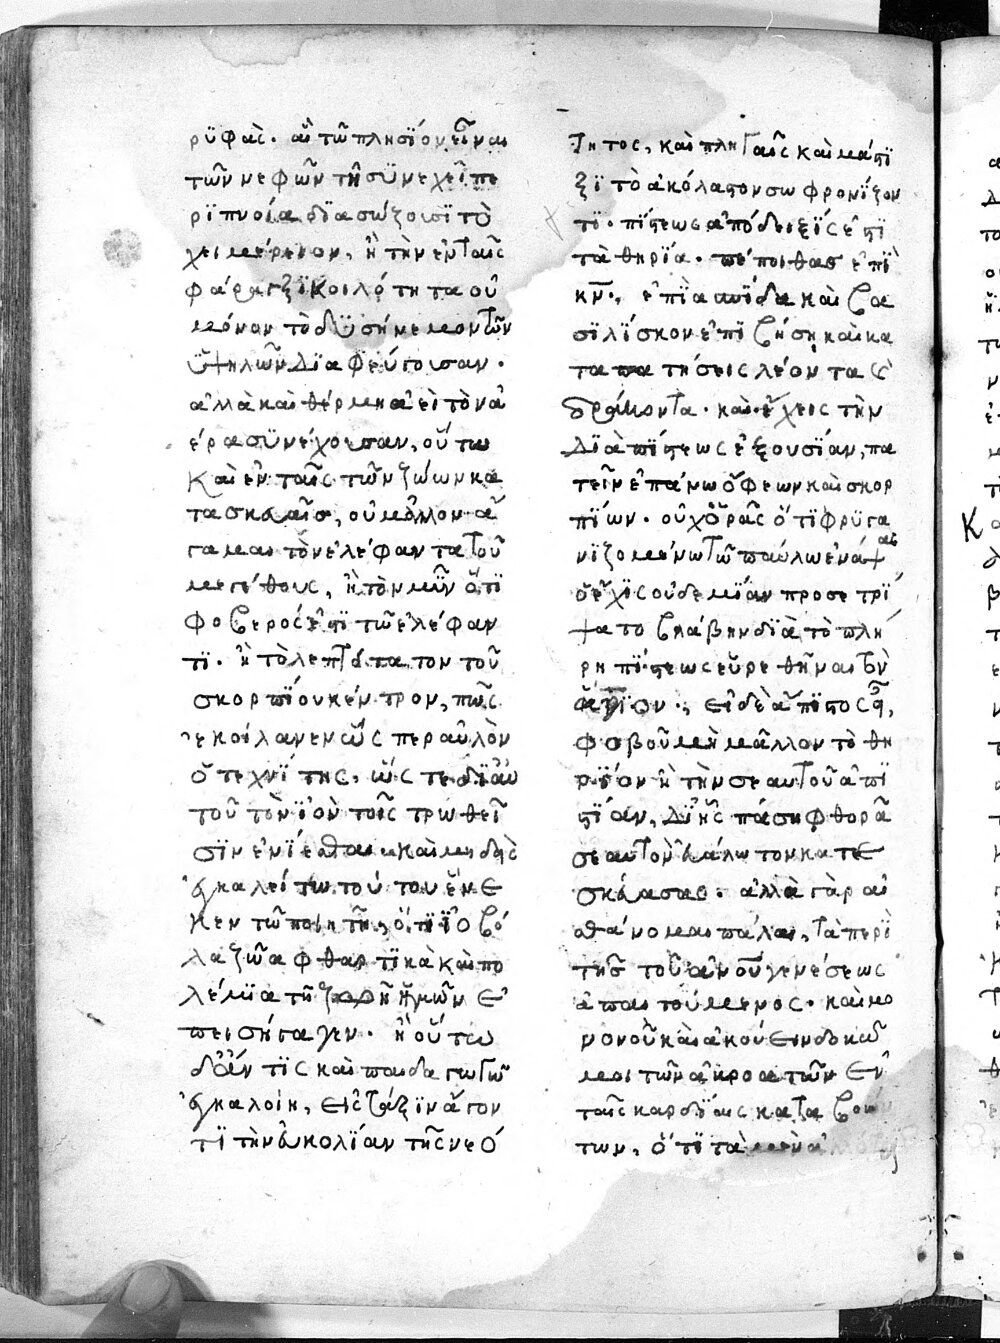 ρϋφὰς· αἳ τῶ πλησϊον εἶναι
τῶν νεφῶν τῆ σϋνεχεῖ πε
ρϊπνοία δϊασώζουσϊ τὸ
χειμέρϊνον, ἢ τὴν ἐν ταῖς
φάραγξϊ κοιλότητα οὐ
μόνον τὸ δϋσήνεμον τῶν
ϋψηλῶν δϊαφεύγουσαν·
ἀλλὰ καὶ θέρμην ἀεὶ τὸν ἀ
έρα σϋνέχουσαν, οὕτω
καὶ ἐν ταῖς τῶν ζώων κα
τασκευαῖς, οὐ μᾶλλον ἄ
γαμαι τὸν ἐλέφαντα τοῦ
μεγέθους, ἢ τὸν μῦν ὅτϊ
φοβερός ἐστϊ τῶ ἐλέφαν
τϊ· ἢ τὸ λεπτότατον τοῦ
σκορπϊου κέντρον, πῶς
ἐκοίλανεν ὥς περ αὐλὸν
ὁ τεχνϊτης· ὥς τε δϊ αὐ
τοῦ τὸν ϊὸν τοῖς τρωθεῖ
σϊν ἐνϊεσθαι· καὶ μηδεὶς
ἐγκαλείτω τούτου ἕνε
κεν τῶ ποιητῆ, ὅτϊ ϊοβό
λα ζῶα φθαρτϊκὰ καὶ πο
λέμϊα τῆ ζωῆ ἡμῶν ἐ
πεισήγαγεν· ἢ οὕτω
δ' ἄν τϊς καὶ παιδαγωγῶ
ἐγκαλοίη, εἰς τάξϊν ἄγον
τϊ τὴν εὐκολϊαν τῆς νεό
τητος, καὶ πληγαῖς καὶ μάστϊ
ξϊ τὸ ἀκόλαστον σωφρονϊζον
τϊ· πϊστεως ἀπόδειξϊς ἐστϊ
τὰ θηρϊα· πέποιθας ἐπὶ
κν̅·, ἐπϊ ἀσπϊδα καὶ βα
σϊλϊσκον ἐπϊβήση καὶ κα
ταπατήσεις λέοντα καὶ
δράκοντα· καὶ ἔχεις τὴν
δϊὰ πϊστεως ἐξουσϊαν, πα
τεῖν ἐπάνω ὄφεων καὶ σκορ
πϊων· οὐχ ὁρᾶς ὅτϊ φρϋγα
νϊζομένω τῶ παύλω ἐνάψας
ὁ ἔχϊς οὐδεμϊαν προσετρϊ
ψατο βλάβην δϊὰ τὸ πλή
ρη πϊστεως εὑρεθῆναι τὸν
ἅγϊον·, εἰ δὲ ἄπϊστος εἶ,
φοβοῦ μὴ μᾶλλον τὸ θη
ρϊον ἢ τὴν σεαυτοῦ ἀπϊ
στϊαν, δϊ ἧς πάση φθορᾶ
σεαυτὸν ἁλάωτον κατε
σκέυασας· ἀλλὰ γὰρ αἰ
σθάνομαι πάλαι, τὰ περὶ
τῆς τοῦ ἀνοῦ γενέσεως
ἀπαιτούμενος· καὶ μο
νονοὺκ ἀκούειν δοκῶ
μοι τῶν ἀκροατῶν ἐν
ταῖς καρδϊαις καταβοών
των, ὅτϊ τὰ μὲν